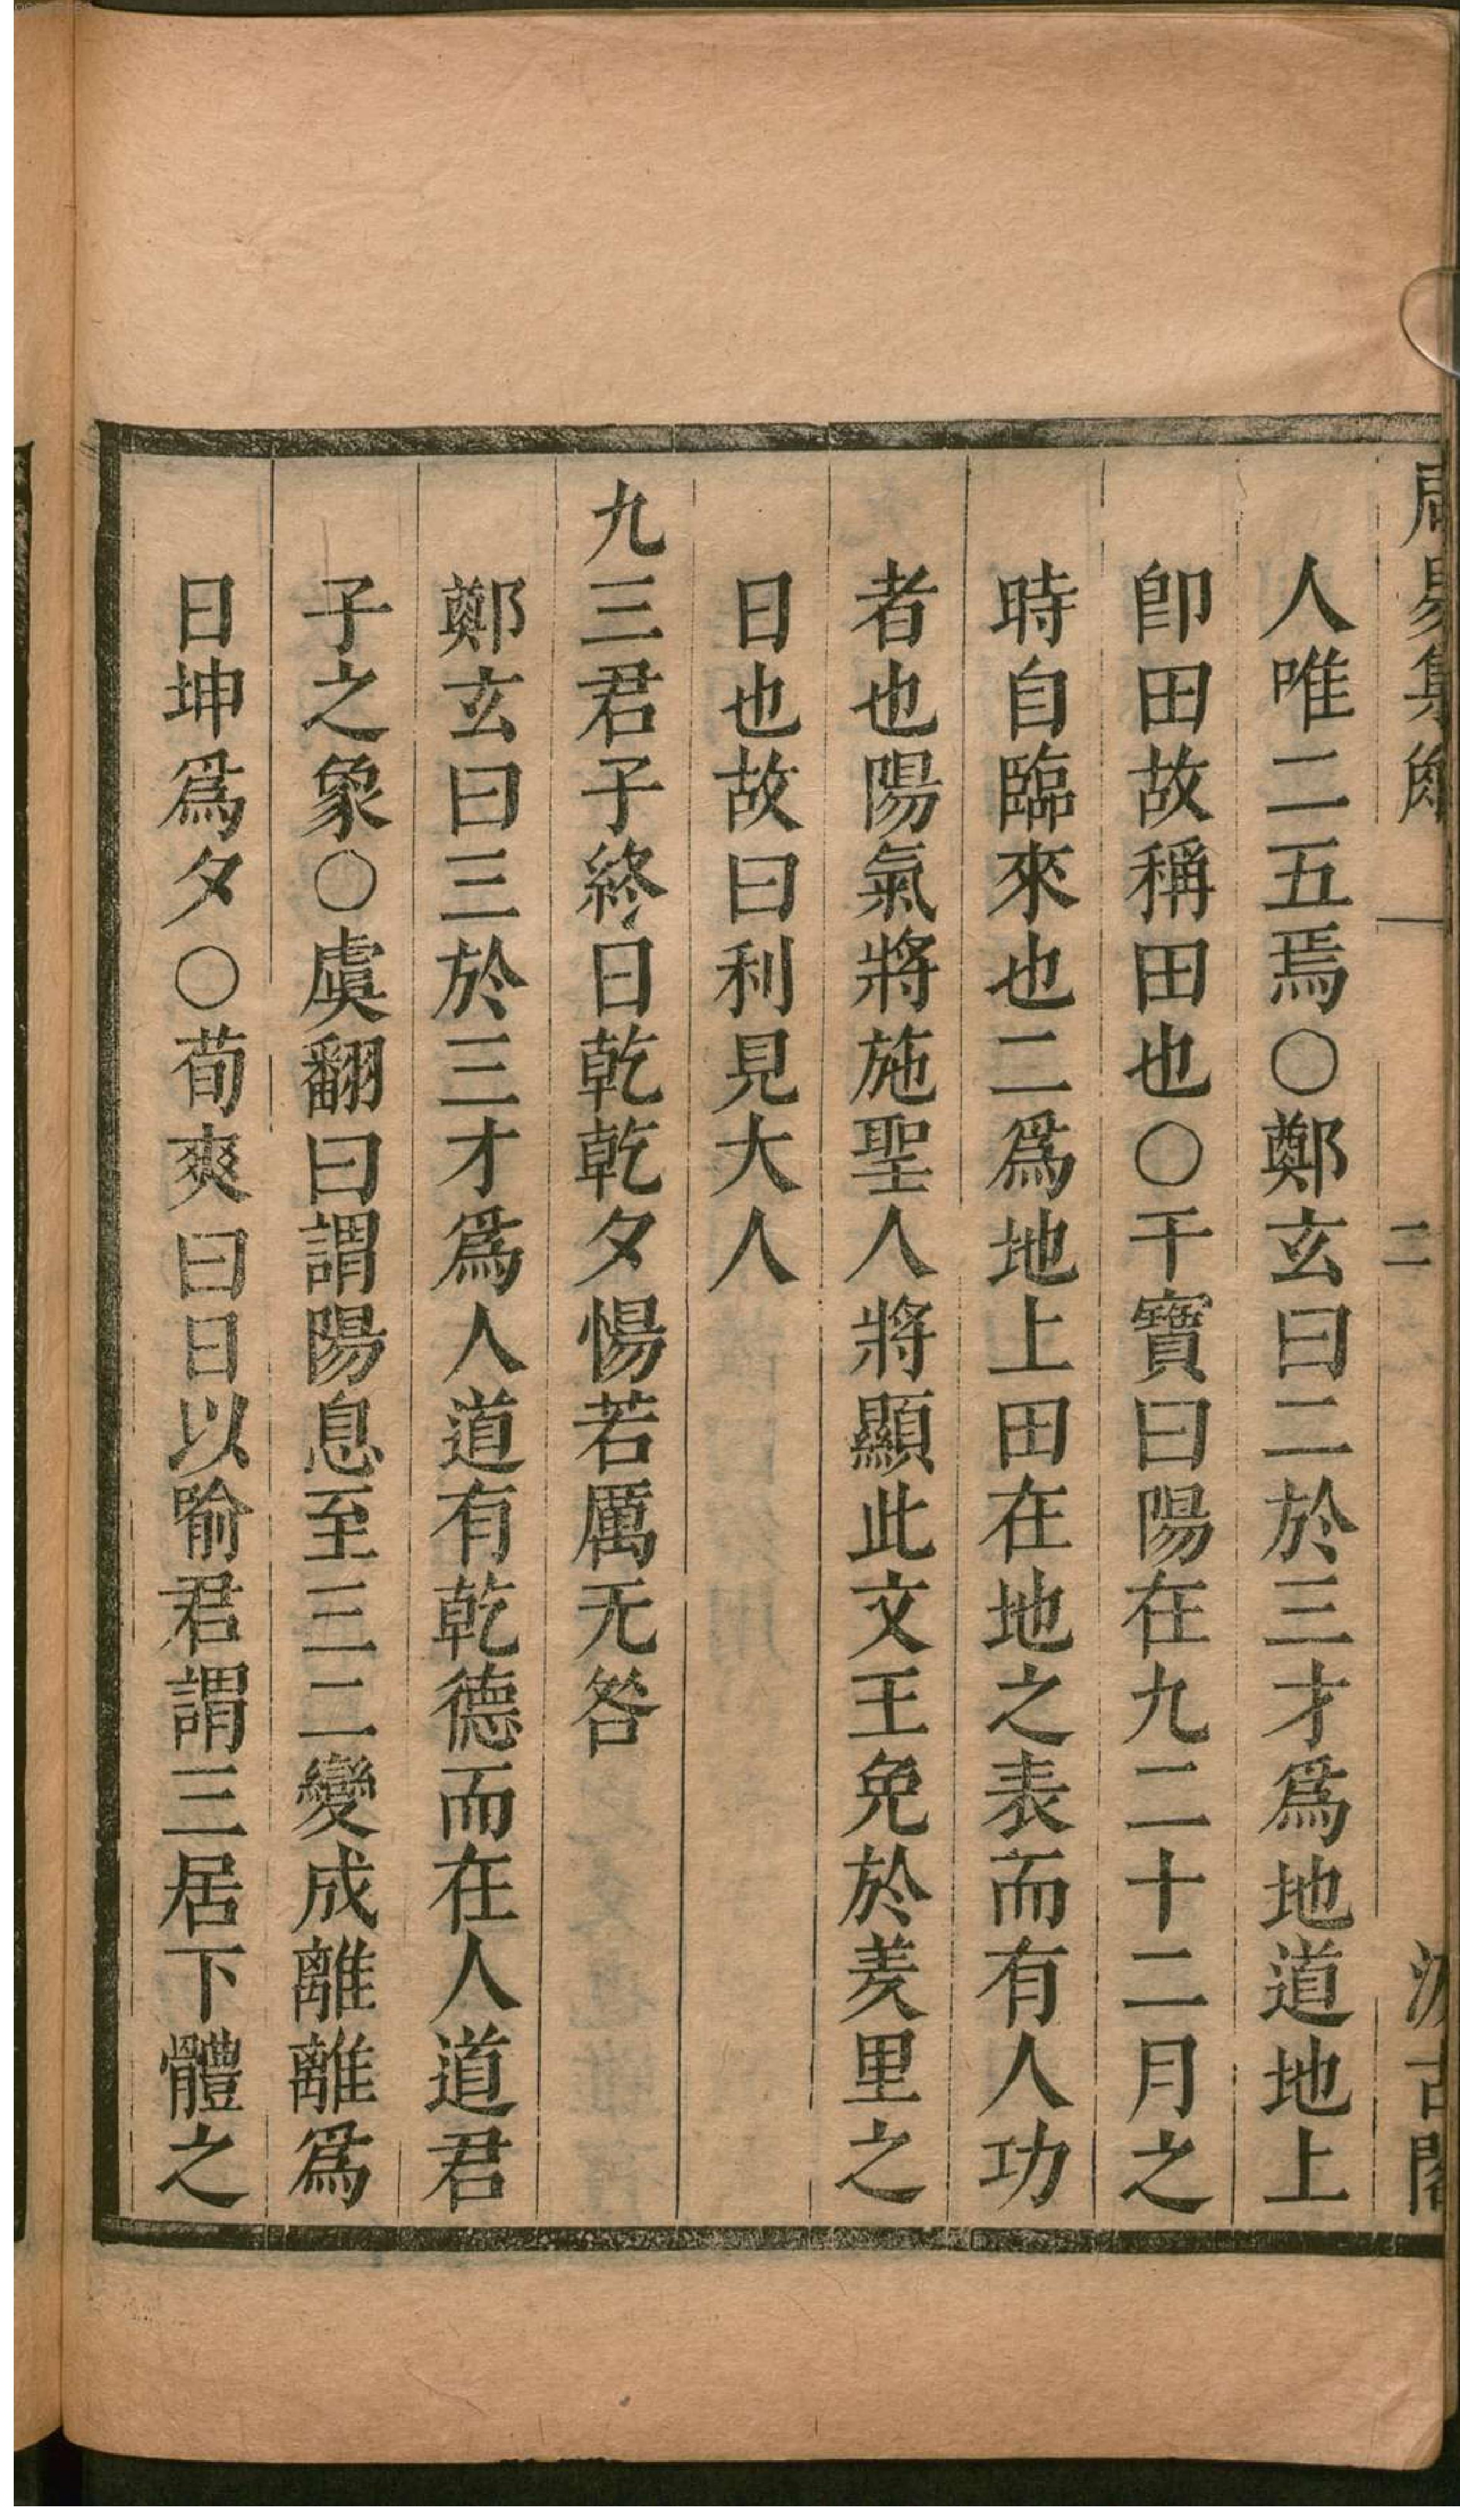 周易集解 一 二 汲古閣
人唯二五焉○鄭玄曰二於三才爲地道地上
卽田故稱田也○干寶曰陽在九二十二月之
時自臨來也二爲地上田在地之表而有人功
者也陽氣將施聖人將顯此文王免於羑里之
日也故曰利見大人
九三君子終日乾乾夕惕若厲无咎
鄭玄曰三於三才爲人道有乾德而在人道君
子之象○虞翻曰謂陽息至三二變成離離爲
日坤爲夕○荀爽曰日以喻君謂三居下體之